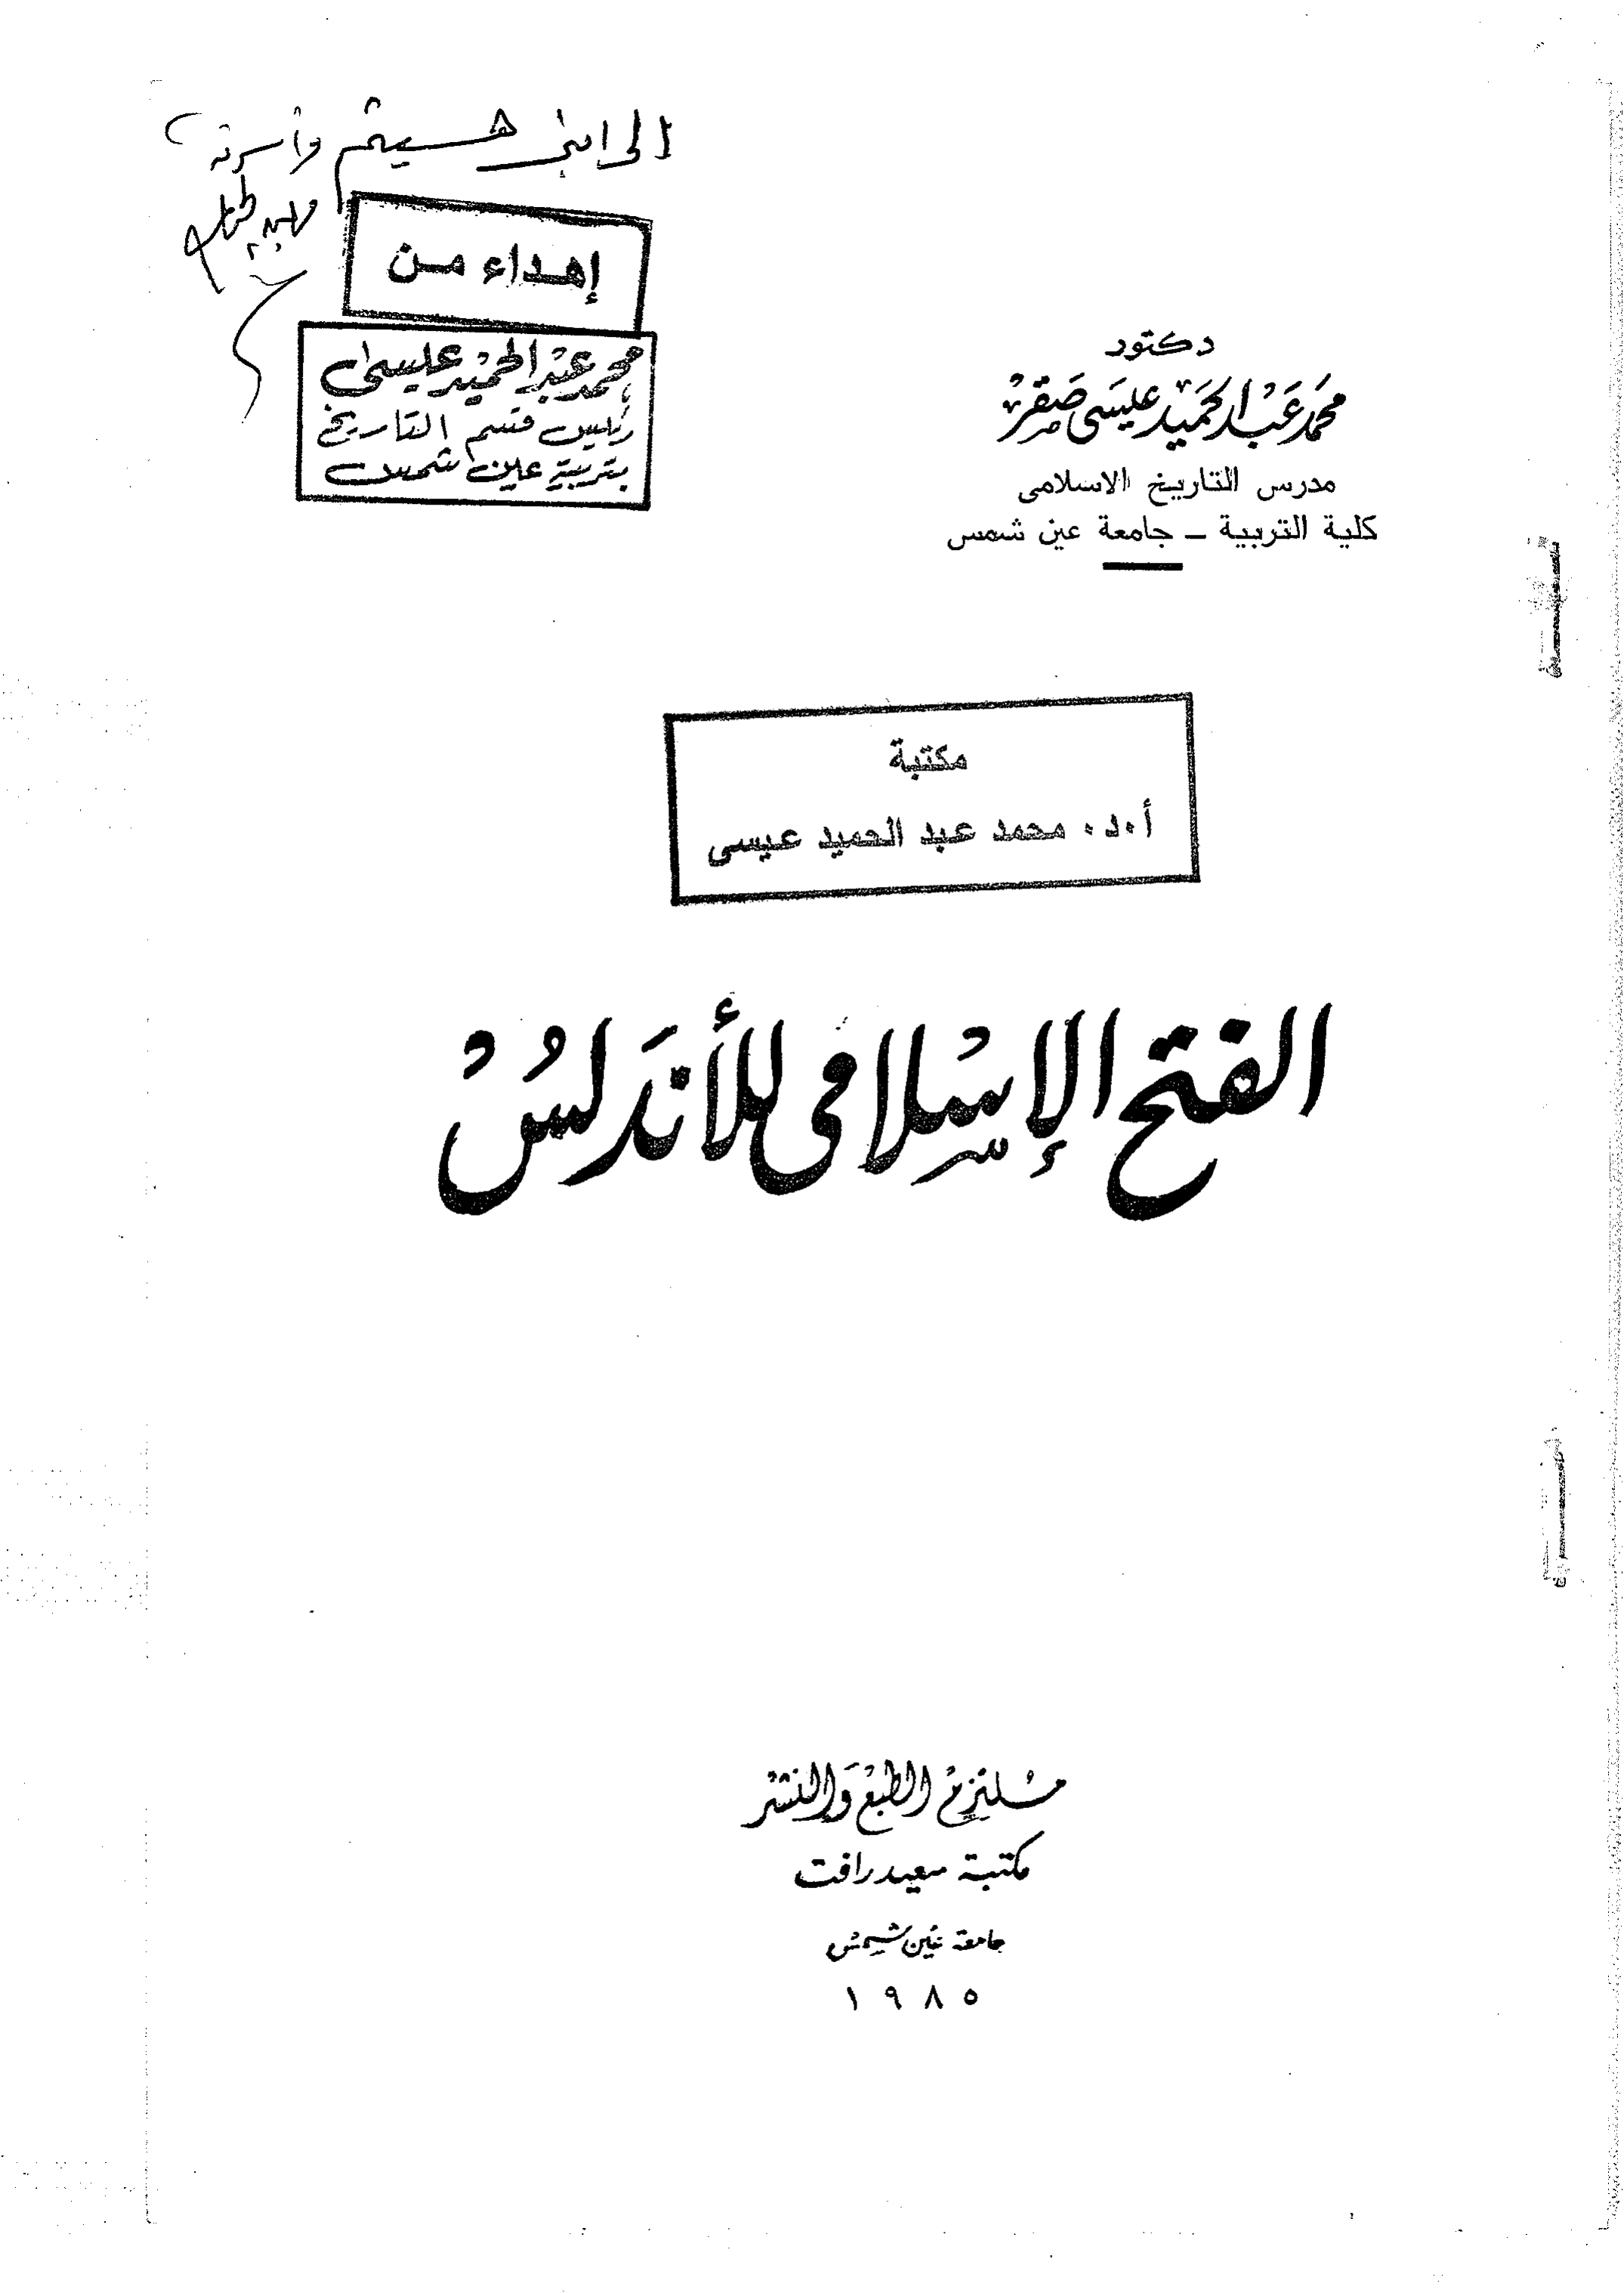 إلى ابنى هيثم وأسرته
إهداء من
محمد عبد الحميد عيسى
رئيس قسم التاريخ
بتربية عين شمس
دكتور
محمد عَبْد الحَميد عيسَى صَقر
مدرس التاريخ الاسلامى
كلية التربية ــ جامعة عين شمس
مكتبة
أ٠د٠ محمد عبد الحميد عيسى
الفتح الإسْلامى للأندَلسُ
ملتزم الطبع وَالنشر
مكتبة سعيد رافت
جامعة عين شمس
١٩٨٥